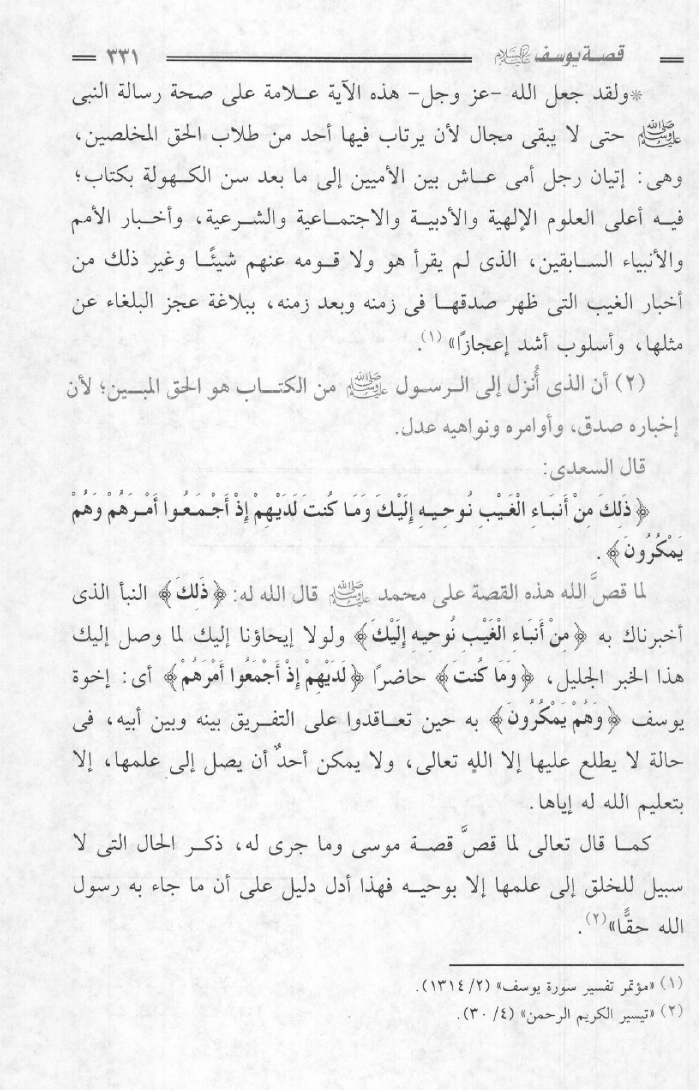 قصة يوسف عليه السلام ٣٣١
*ولقد جعل الله -عز وجل- هذه الآية علامة على صحة رسالة النبى
ﷺ حتى لا يبقى مجال لأن يرتاب فيها أحد من طلاب الحق المخلصين،
وهى: إتيان رجل أمى عاش بين الأميين إلى ما بعد سن الكهولة بكتاب؛
فيه أعلى العلوم الإلهية والأدبية والاجتماعية والشرعية، وأخبار الأمم
والأنبياء السابقين، الذى لم يقرأ هو ولا قومه عنهم شيئًا وغير ذلك من
أخبار الغيب التى ظهر صدقها فى زمنه وبعد زمنه، ببلاغة عجز البلغاء عن
مثلها، وأسلوب أشد إعجازًا» (١).
(٢) أن الذى أُنزل إلى الرسول ﷺ من الكتاب هو الحق المبين؛ لأن
إخباره صدق، وأوامره ونواهيه عدل.
قال السعدى:
﴿ ذَلِكَ مِنْ أَنبَاءِ الْغَيْبِ نُوحِيهِ إِلَيْكَ وَمَا كُنتَ لَدَيْهِمْ إِذْ أَجْمَعُوا أَمْرَهُمْ وَهُمْ
يَمْكُرُونَ ﴾ .
لما قصَّ الله هذه القصة على محمد ﷺ قال الله له: ﴿ ذَلِكَ ﴾ النبأ الذى
أخبرناك به ﴿ مِنْ أَنبَاءِ الْغَيْبِ نُوحِيهِ إِلَيْكَ ﴾ ولولا إيحاؤنا إليك لما وصل إليك
هذا الخبر الجليل، ﴿ وَمَا كُنتَ ﴾ حاضرًا ﴿ لَدَيْهِمْ إِذْ أَجْمَعُوا أَمْرَهُمْ ﴾ أى: إخوة
يوسف ﴿ وَهُمْ يَمْكُرُونَ ﴾ به حين تعاقدوا على التفريق بينه وبين أبيه، فى
حالة لا يطلع عليها إلا الله تعالى، ولا يمكن أحدٌ أن يصل إلى علمها، إلا
بتعليم الله له إياها.
كما قال تعالى لما قصَّ قصة موسى وما جرى له، ذكر الحال التى لا
سبيل للخلق إلى علمها إلا بوحيه فهذا أدل دليل على أن ما جاء به رسول
الله حقًّا» (٢) .
(١) «مؤتمر تفسير سورة يوسف» (٢/ ١٣١٤).
(٢) «تيسير الكريم الرحمن» (٤/ ٣٠).